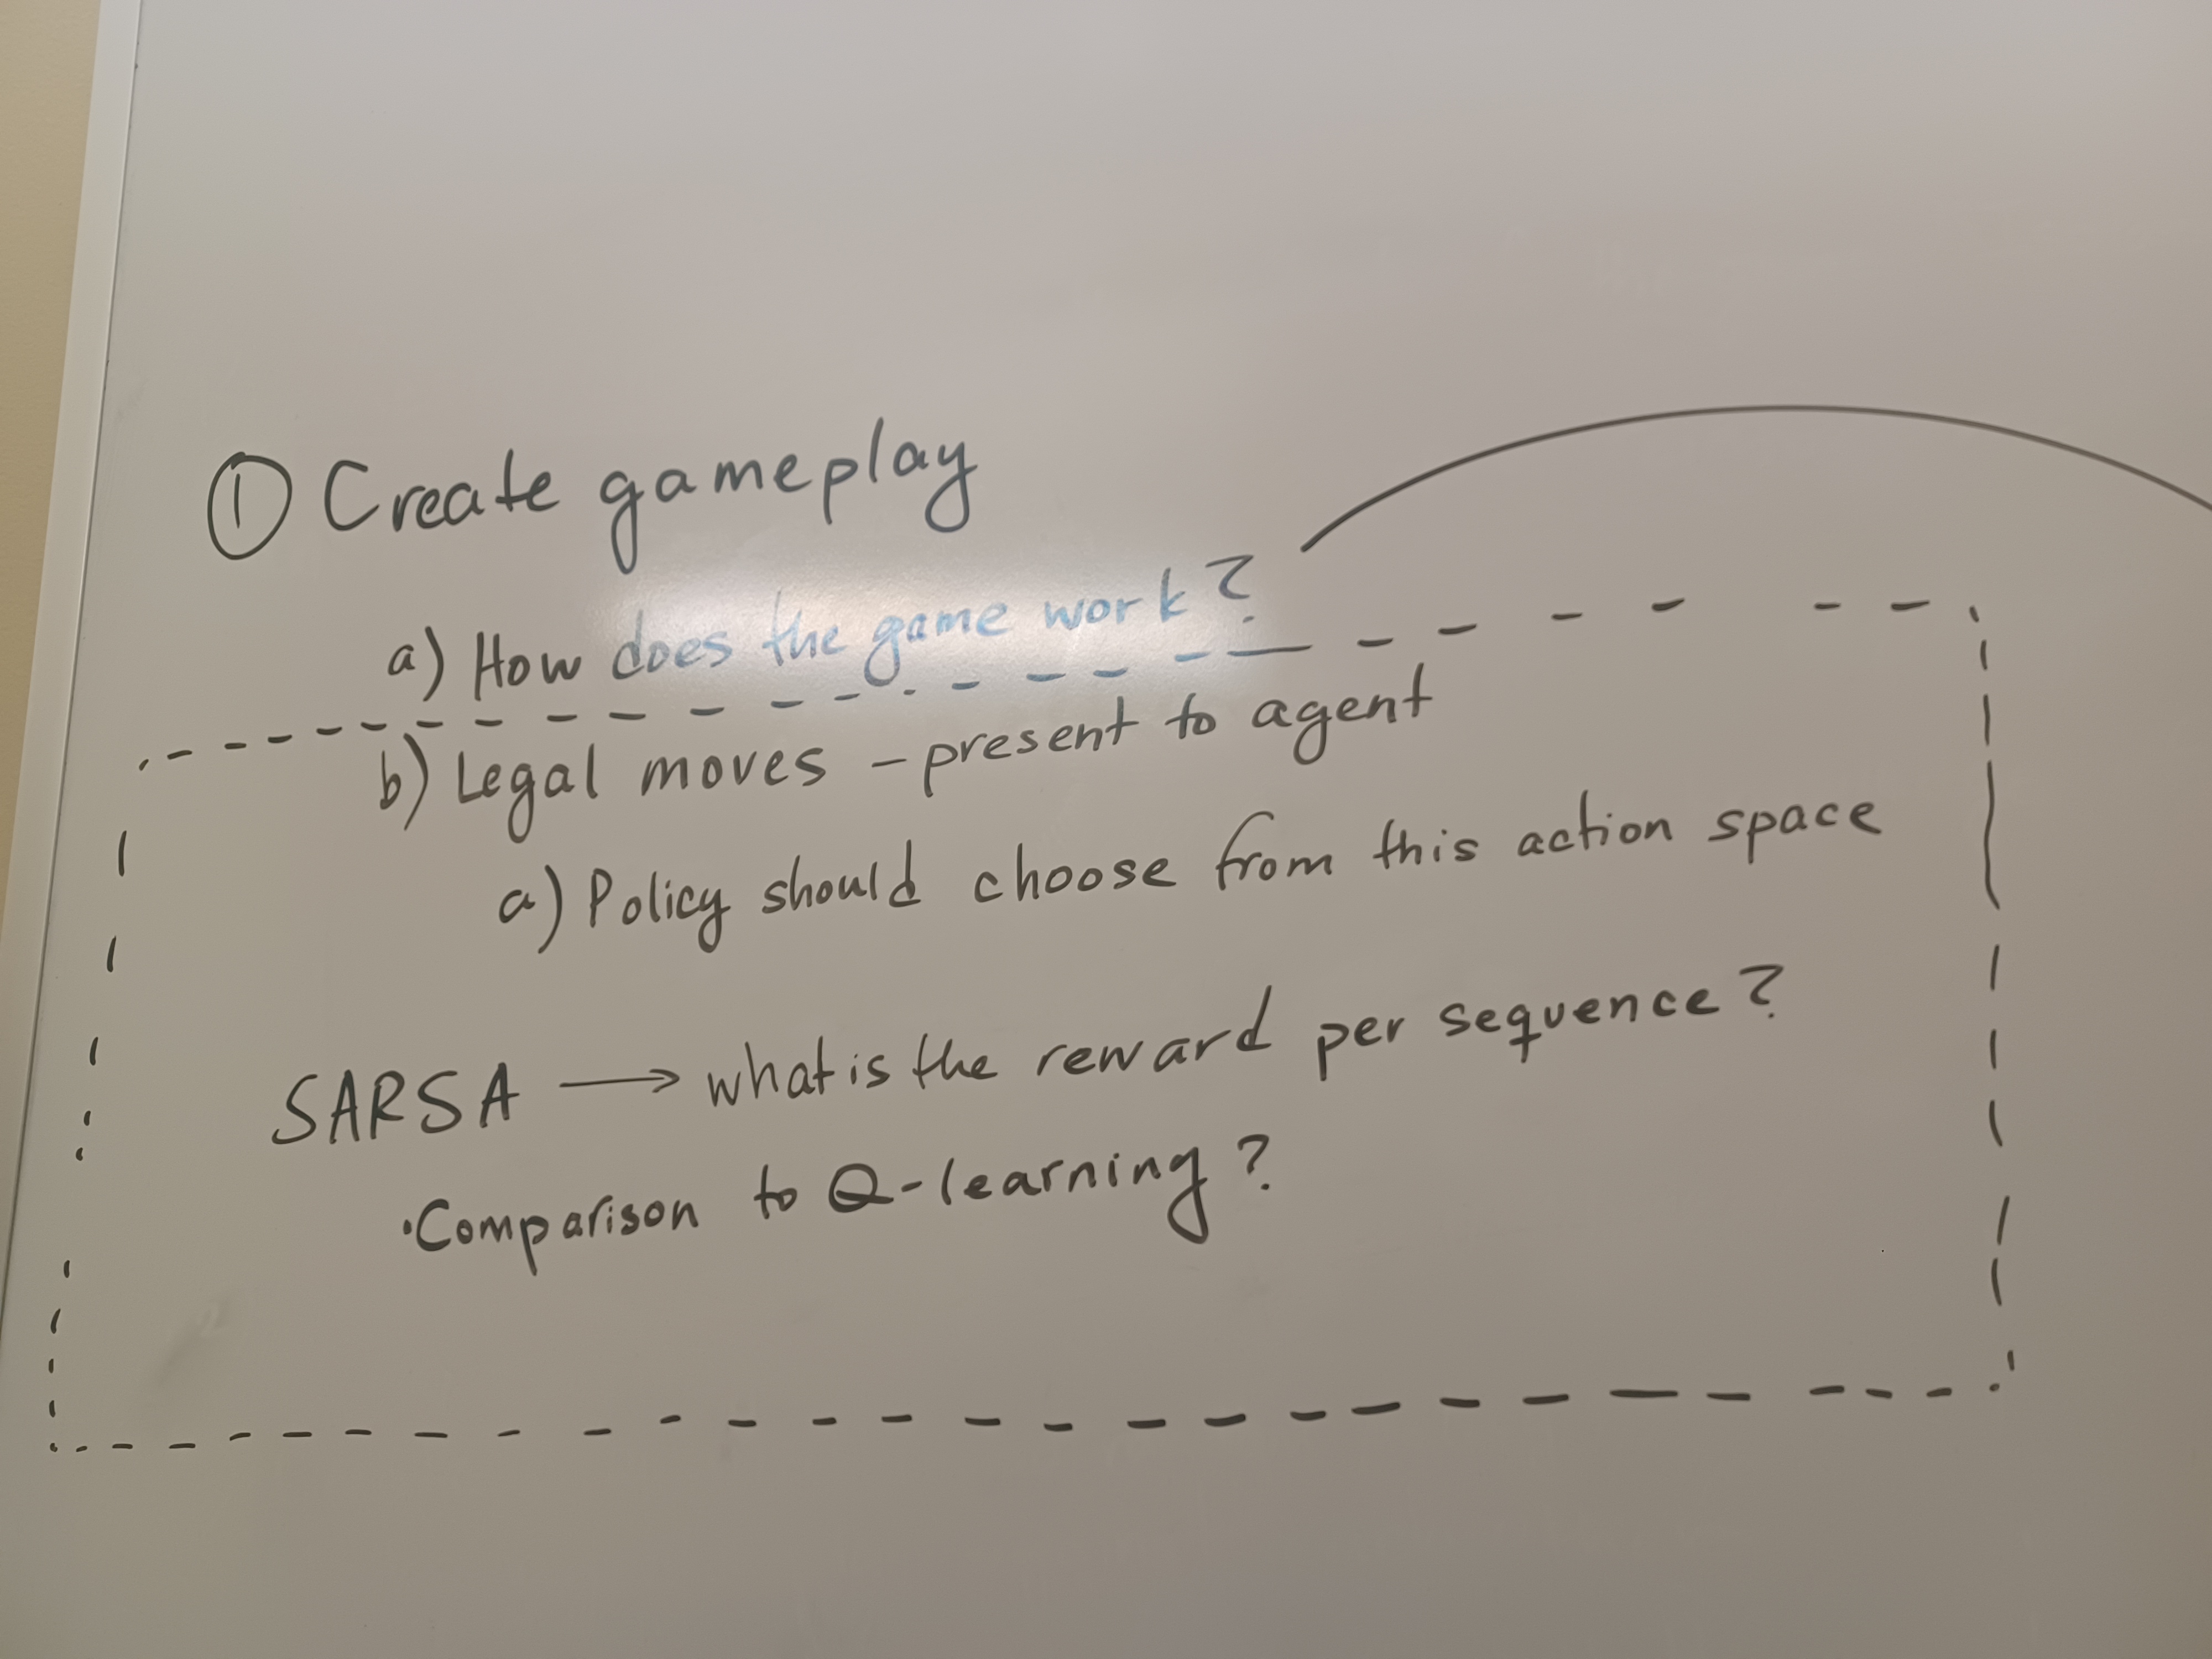 ① Create gameplay
a) How does the game work?
b) Legal moves - present to agent
a) Policy should choose from this action space
SARSA → what is the reward per sequence?
• Comparison to Q-learning?